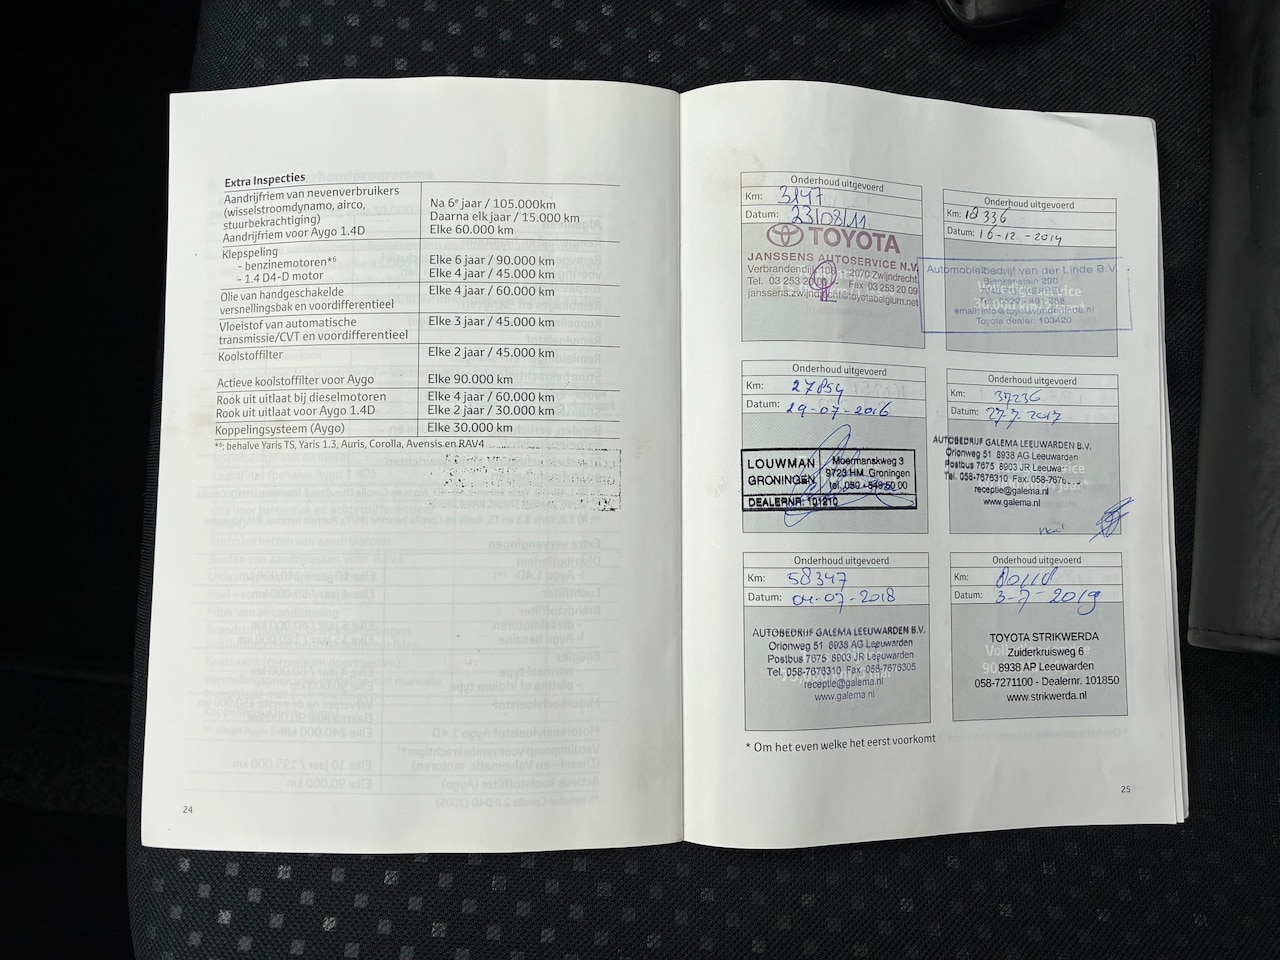 Extra Inspecties
Aandrijfriem van nevenverbruikers
(wisselstroomdynamo, airco,
stuurbekrachtiging)
Na 6e jaar / 105.000km
Daarna elk jaar / 15.000 km
Aandrijfriem voor Aygo 1.4D
Elke 60.000 km
Klepspeling
- benzinemotoren*6
Elke 6 jaar / 90.000 km
- 1.4 D4-D motor
Elke 4 jaar / 45.000 km
Olie van handgeschakelde
versnellingsbak en voordifferentieel
Elke 4 jaar / 60.000 km
Vloeistof van automatische
transmissie/CVT en voordifferentieel
Elke 3 jaar / 45.000 km
Koolstoffilter
Elke 2 jaar / 45.000 km
Actieve koolstoffilter voor Aygo
Elke 90.000 km
Rook uit uitlaat bij dieselmotoren
Elke 4 jaar / 60.000 km
Rook uit uitlaat voor Aygo 1.4D
Elke 2 jaar / 30.000 km
Koppelingsysteem (Aygo)
Elke 30.000 km
*6: behalve Yaris TS, Yaris 1.3, Auris, Corolla, Avensis en RAV4
24
Onderhoud uitgevoerd
Km: 3147
Datum: 23/08/11
TOYOTA
JANSSENS AUTOSERVICE N.V.
Verbrandendijk 108 - 2070 Zwijndrecht
Tel. 03 253 20 Fax 03 253 20 09
janssens.zwijndrecht@toyotabelgium.net
Onderhoud uitgevoerd
Km: 18336
Datum: 16-12-2014
Automobielbedrijf van der Linde B.V.
email: info@toyotavanderlinde.nl
Toyota dealer: 103420
Onderhoud uitgevoerd
Km: 27854
Datum: 29-07-2016
LOUWMAN
GRONINGEN
Moermanskweg 3
9723 HM Groningen
tel. 050 - 549 50 00
DEALERNR: 101210
Onderhoud uitgevoerd
Km: 37236
Datum: 27-7-2017
AUTOBEDRIJF GALEMA LEEUWARDEN B.V.
Orionweg 51 8938 AG Leeuwarden
Postbus 7675 8903 JR Leeuwar
Tel. 058-7676310 Fax. 058-767
receptie@galema.nl
www.galema.nl
Onderhoud uitgevoerd
Km: 58347
Datum: 04-07-2018
AUTOBEDRIJF GALEMA LEEUWARDEN B.V.
Orionweg 51 8938 AG Leeuwarden
Postbus 7675 8903 JR Leeuwarden
Tel. 058-7676310 Fax. 058-7676305
receptie@galema.nl
www.galema.nl
Onderhoud uitgevoerd
Km:
Datum: 3-7-2019
TOYOTA STRIKWERDA
Zuiderkruisweg 6
8938 AP Leeuwarden
058-7271100 - Dealernr. 101850
www.strikwerda.nl
* Om het even welke het eerst voorkomt
25